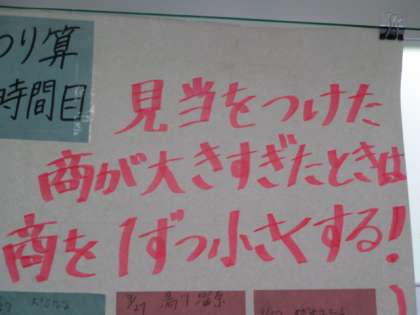 つり算
時間目
見当をつけた
商が大きすぎたときは
商を1ずつ小さくする!